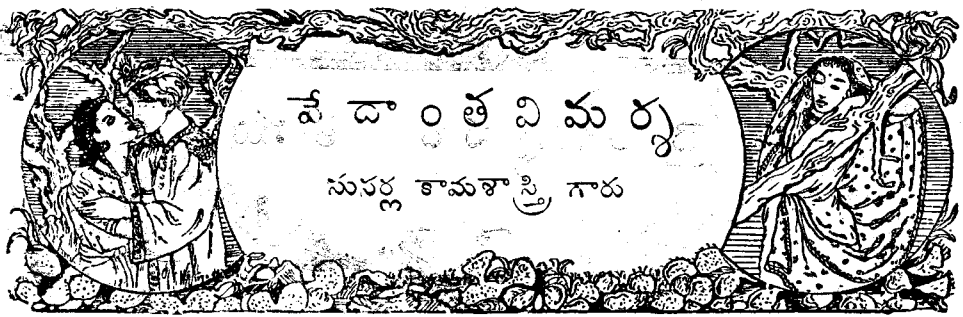 వేదాంతవిమర్శ
సుసర్ల కామశాస్త్రి గారు